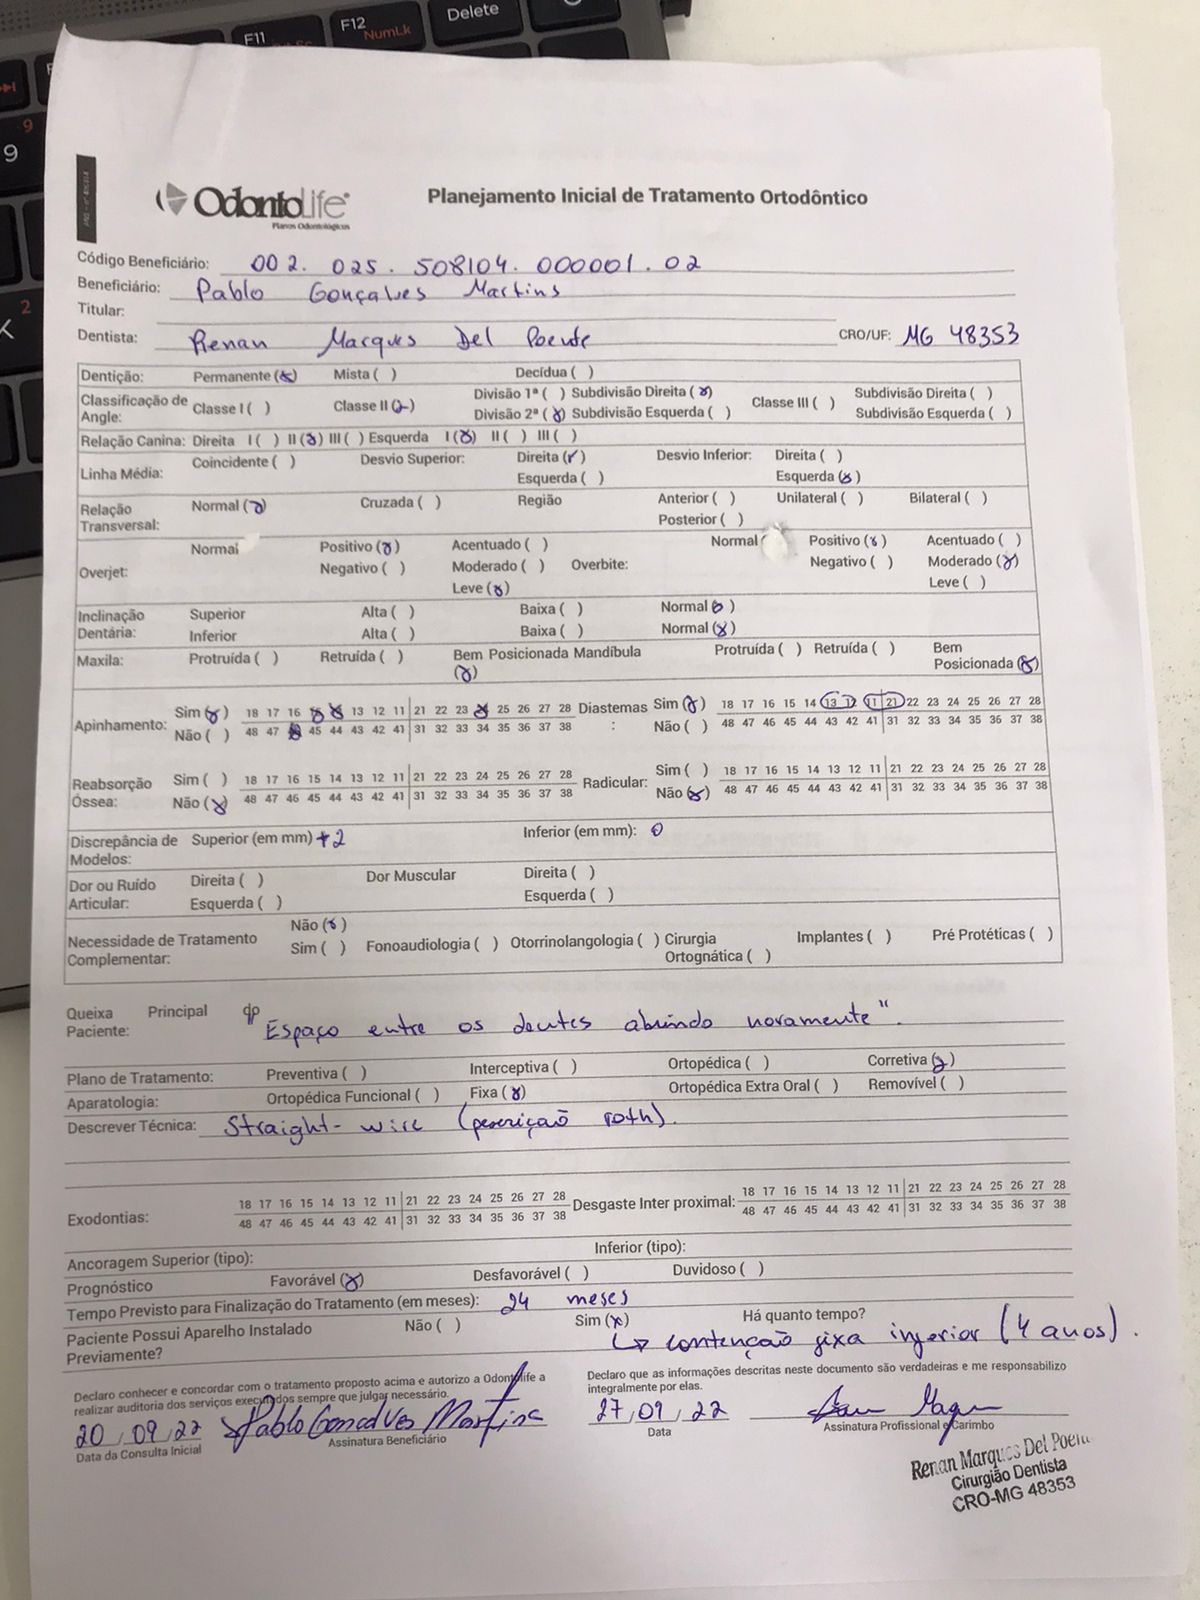 F11
F12
NumLk
Delete
9
9
2
K
OdontoLife
Planos Odontológicos
Planejamento Inicial de Tratamento Ortodôntico
Código Beneficiário: 002. 025. 508104. 000001. 02
Beneficiário: Pablo Gonçalves Martins
Titular:
Dentista: Renan Marques Del Poente CRO/UF: MG 48353
Dentição: Permanente (x) Mista ( ) Decídua ( )
Classificação de Angle: Classe I ( ) Classe II (x) Divisão 1ª ( ) Subdivisão Direita (x) Classe III ( ) Subdivisão Direita ( )
Divisão 2ª (x) Subdivisão Esquerda ( ) Subdivisão Esquerda ( )
Relação Canina: Direita I ( ) II (x) III ( ) Esquerda I (x) II ( ) III ( )
Linha Média: Coincidente ( ) Desvio Superior: Direita (✓) Desvio Inferior: Direita ( )
Esquerda ( ) Esquerda (x)
Relação Transversal: Normal (x) Cruzada ( ) Região Anterior ( ) Unilateral ( ) Bilateral ( )
Posterior ( )
Overjet: Normal Positivo (x) Acentuado ( ) Overbite: Normal ( Positivo (x) Acentuado ( )
Negativo ( ) Moderado ( ) Negativo ( ) Moderado (x)
Leve (x) Leve ( )
Inclinação Dentária: Superior Alta ( ) Baixa ( ) Normal (x)
Inferior Alta ( ) Baixa ( ) Normal (x)
Maxila: Protruída ( ) Retruída ( ) Bem Posicionada (x) Mandíbula Protruída ( ) Retruída ( ) Bem Posicionada (x)
Apinhamento: Sim (x) 18 17 16 15 14 13 12 11 21 22 23 24 25 26 27 28 Diastemas: Sim (x) 18 17 16 15 14 13 12 11 21 22 23 24 25 26 27 28
Não ( ) 48 47 46 45 44 43 42 41 31 32 33 34 35 36 37 38 Não ( ) 48 47 46 45 44 43 42 41 31 32 33 34 35 36 37 38
Reabsorção Óssea: Sim ( ) 18 17 16 15 14 13 12 11 21 22 23 24 25 26 27 28 Radicular: Sim ( ) 18 17 16 15 14 13 12 11 21 22 23 24 25 26 27 28
Não (x) 48 47 46 45 44 43 42 41 31 32 33 34 35 36 37 38 Não (x) 48 47 46 45 44 43 42 41 31 32 33 34 35 36 37 38
Discrepância de Modelos: Superior (em mm) +2 Inferior (em mm): 0
Dor ou Ruído Articular: Direita ( ) Dor Muscular Direita ( )
Esquerda ( ) Esquerda ( )
Necessidade de Tratamento Complementar: Não (x)
Sim ( ) Fonoaudiologia ( ) Otorrinolangologia ( ) Cirurgia Ortognática ( ) Implantes ( ) Pré Protéticas ( )
Queixa Principal dp Paciente: "Espaço entre os dentes abrindo novamente".
Plano de Tratamento: Preventiva ( ) Interceptiva ( ) Ortopédica ( ) Corretiva (x)
Aparatologia: Ortopédica Funcional ( ) Fixa (x) Ortopédica Extra Oral ( ) Removível ( )
Descrever Técnica: Straight-wire (prescrição roth).
Exodontias: 18 17 16 15 14 13 12 11 21 22 23 24 25 26 27 28 Desgaste Inter proximal: 18 17 16 15 14 13 12 11 21 22 23 24 25 26 27 28
48 47 46 45 44 43 42 41 31 32 33 34 35 36 37 38 48 47 46 45 44 43 42 41 31 32 33 34 35 36 37 38
Ancoragem Superior (tipo): Inferior (tipo):
Prognóstico Favorável (x) Desfavorável ( ) Duvidoso ( )
Tempo Previsto para Finalização do Tratamento (em meses): 24 meses
Paciente Possui Aparelho Instalado Previamente? Não ( ) Sim (x) Há quanto tempo?
↳ contenção fixa inferior (4 anos).
Declaro conhecer e concordar com o tratamento proposto acima e autorizo a Odontolife a
realizar auditoria dos serviços executados sempre que julgar necessário.
Declaro que as informações descritas neste documento são verdadeiras e me responsabilizo
integralmente por elas.
20, 09, 22 Pablo Gonçalves Martins 27, 09, 22
Data da Consulta Inicial Assinatura Beneficiário Data Assinatura Profissional e Carimbo
Renan Marques Del Poente
Cirurgião Dentista
CRO-MG 48353